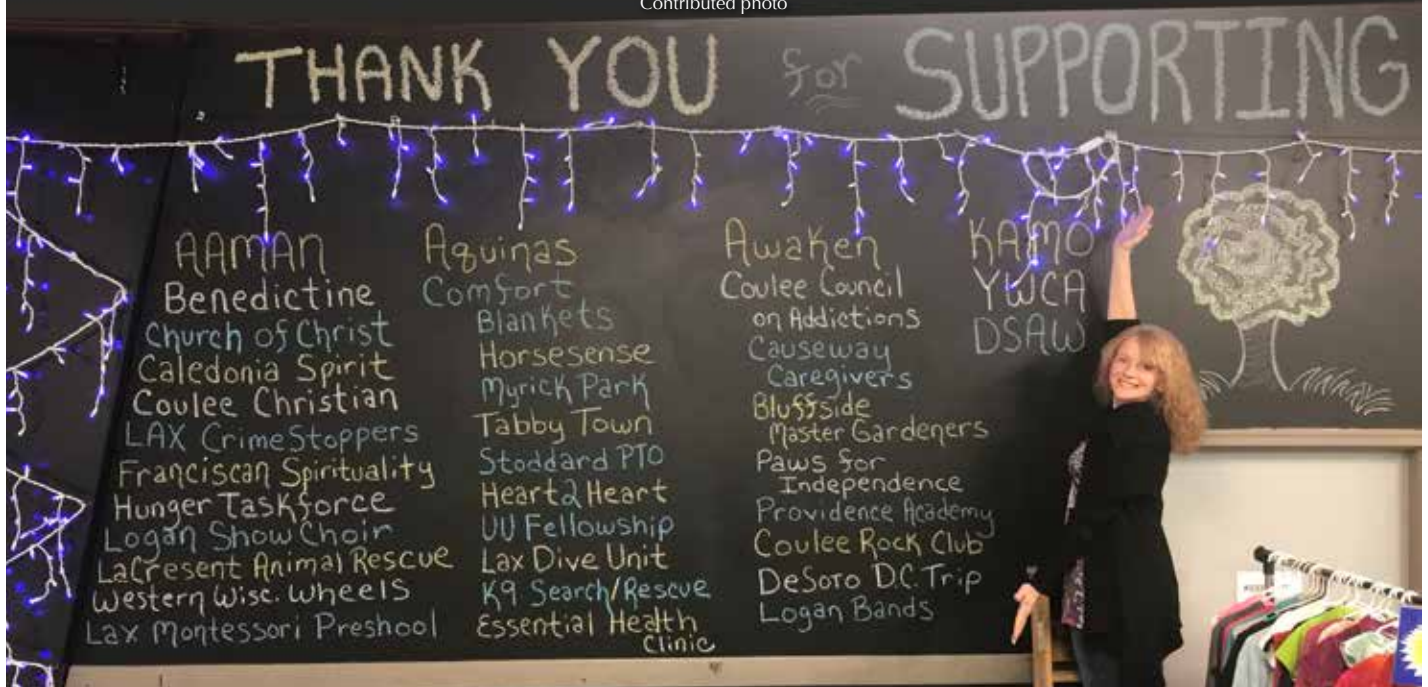 Contributed photo
THANK YOU for SUPPORTING
AAMAN
Benedictine
Church of Christ
Caledonia Spirit
Coulee Christian
LAX CrimeStoppers
Franciscan Spirituality
Hunger Taskforce
Logan Show Choir
LaCresent Animal Rescue
Western Wisc. Wheels
Lax Montessori Preshool
Aquinas
Comfort
Blankets
Horsesense
Myrick Park
Tabby Town
Stoddard PTO
Heart2Heart
UU Fellowship
Lax Dive Unit
K9 Search/Rescue
Essential Health
Clinic
Awaken
Coulee Council
on Addictions
Causeway
Caregivers
Bluffside
Master Gardeners
Paws for
Independence
Providence Academy
Coulee Rock Club
DeSoto D.C. Trip
Logan Bands
KAMO
YWCA
DSAW